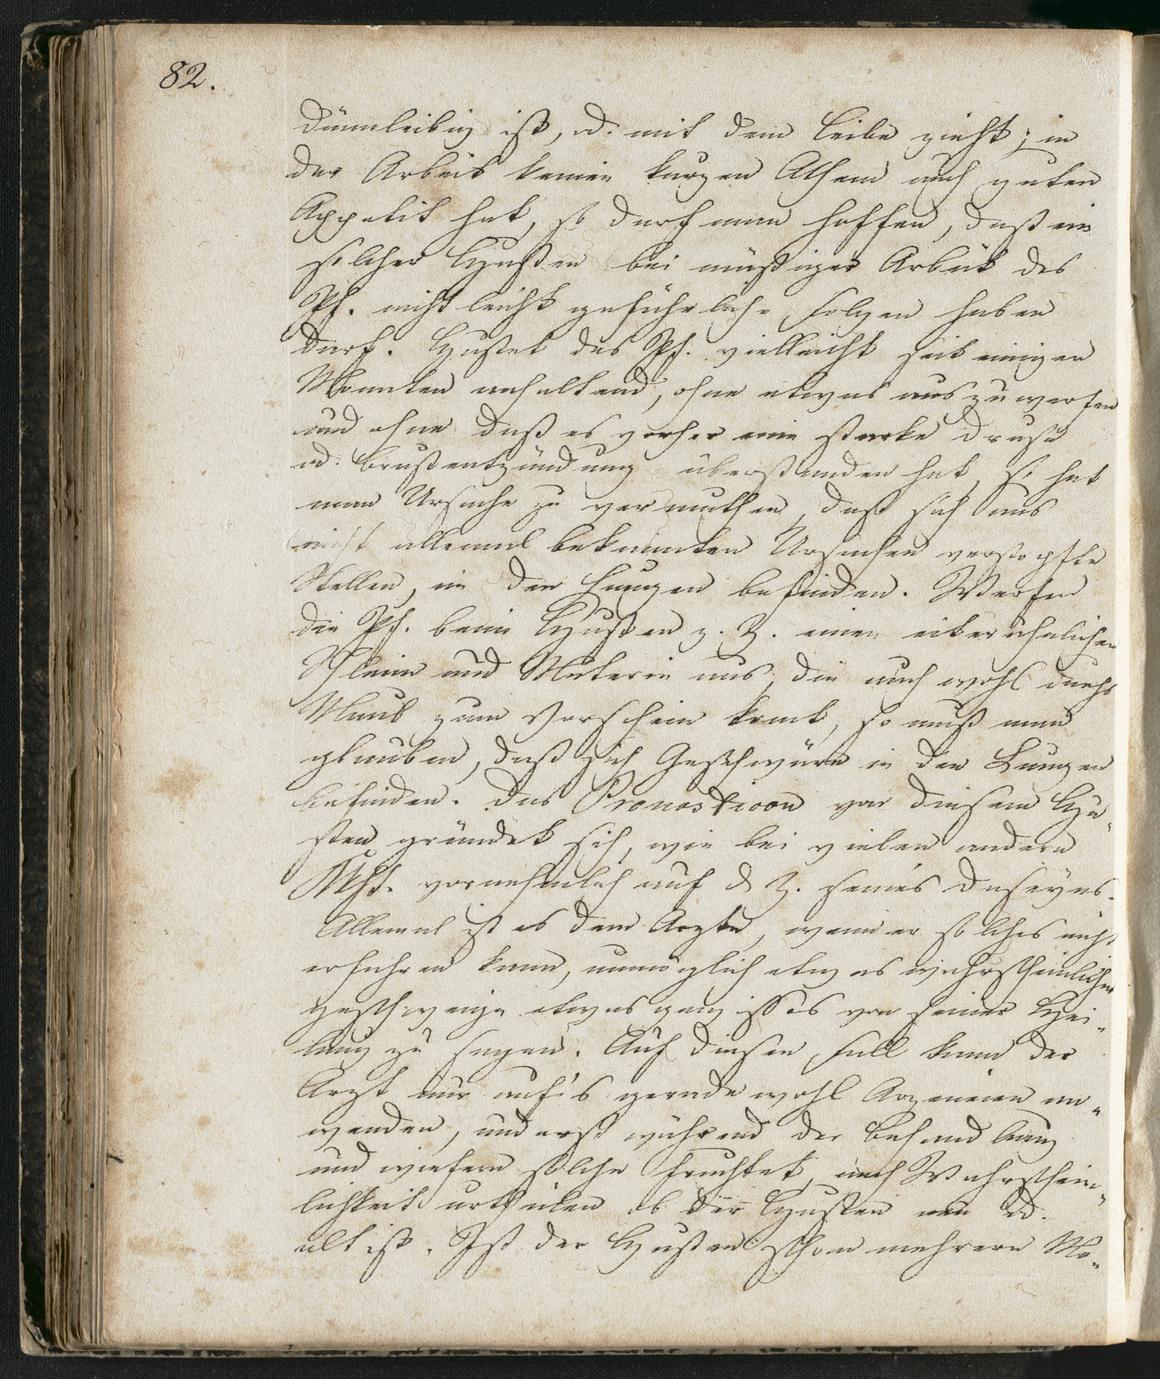 82.
dünnleibig ist, od. mit dem Leibe zieht; in
der Arbeit keinen kurzen Athem auch guten
Appetit hat, so darf man hoffen, daß ein
solcher Husten bei mäßiger Arbeit des
Pf. nicht leicht gefährliche Folgen haben
darf. Hustet das Pf. vielleicht seit einigen
Monaten anhaltend, ohne etwas auszuwerfen
und ohne daß es vorher eine starke Druse
od. Brustentzündung überstanden hat, so hat
man Ursache zu vermuthen, daß sich aus
nicht allemal bekannten Ursachen verstopfte
Stellen, in den Lungen befinden. Werfen
die Pf. beim Husten z. Z. einen eiterähnlichen
Schleim und Materie aus, die auch wohl durchs
Maul zum Vorschein komt, so muß man
glauben, daß sich Geschwüre in den Lungen
befinden. Das Pronosticon von diesem Hu-
sten gründet sich, wie bei vielen andern
vornehmlich auf d. Z. seines Daseyns.
Allemal ist es dem Arzte, wenn er solches nicht
erfahren kann, unmöglich etwas wahrscheinliches
geschweige etwas gewisses von seiner Hei-
lung zu sagen. Auf diesen Fall kann der
Arzt nur auf's geradewohl Arzeneien an-
wenden, und erst während der Behandlung
und wiefern solche fruchtet, nach Wahrschein-
lichkeit urtheilen ob der Husten neu od.
alt ist. Ist der Husten schon mehrere Mo-